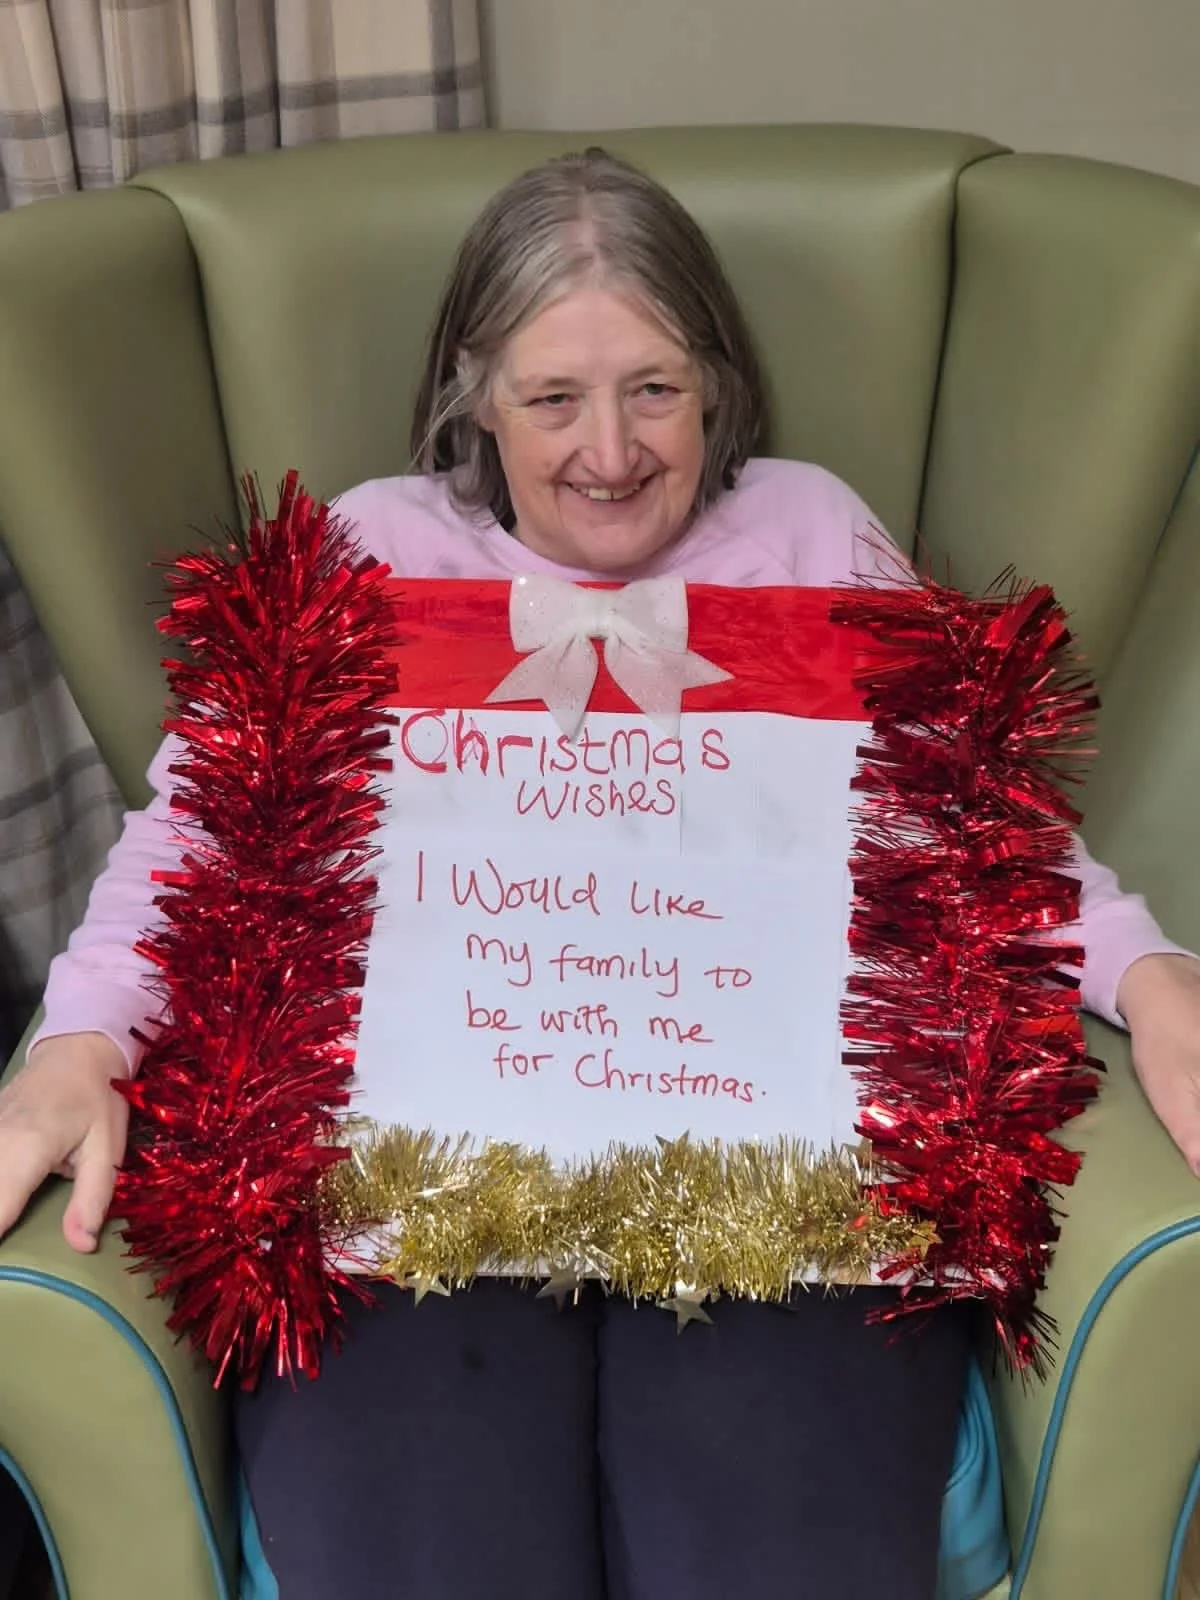 Christmas
Wishes
I Would Like
my family to
be with me
for Christmas.